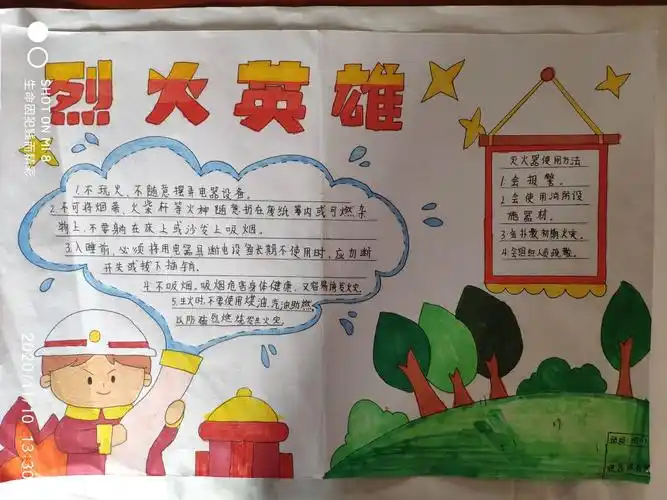 烈火英雄
1.不玩火、不随意摆弄电器设备。
2.不可将烟蒂、火柴杆等火种随意扔在废纸篓内或可燃杂
物上,不要躺在床上或沙发上吸烟。
3.入睡前,必须将用电器具断电设当长期不使用时,应切断
开关或拔下插销。
4.不吸烟,吸烟危害身体健康、又容易消发火灾
5.生火时,不要使用煤油,汽油助燃
以防
灭火器使用方法
1.会报警。
2.会使用消防设
施器材。
3.会扑救初期火灾。
4.会组织人员疏散。
SHOT ON MI 8
生命因犯错而精彩
2020/11/10 13:30